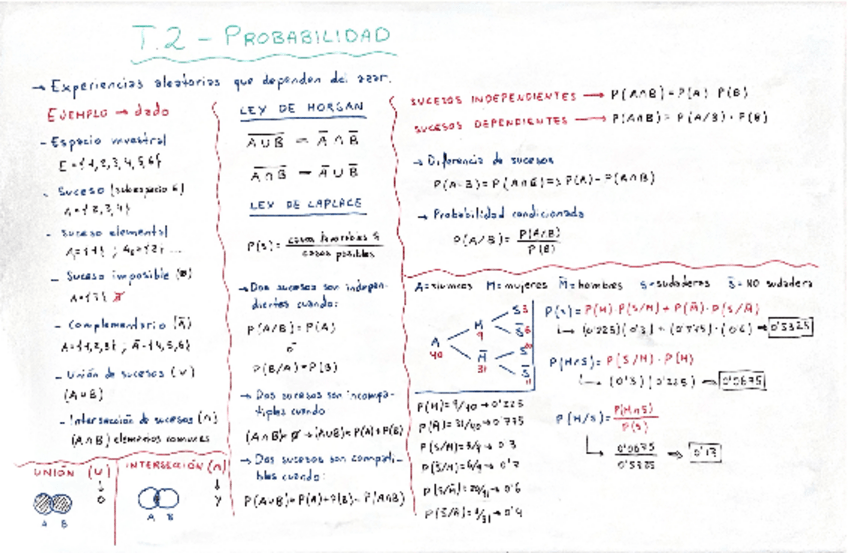 T.2 - PROBABILIDAD
→ Experiencias aleatorias que dependen del azar.
EJEMPLO → dado
- Espacio muestral
E = {1,2,3,4,5,6}
- Suceso (subespacio E)
A = {2,3,4}
- Suceso elemental
- Suceso imposible (Ø)
- Complementario (Ā)
A = {1,2,3} ; Ā = {4,5,6}
- Unión de sucesos (∪)
(A∪B)
- Intersección de sucesos (∩)
(A∩B) elementos comunes
UNIÓN (∪)
↓
O
A B
INTERSECCIÓN (∩)
↓
Y
A B
LEY DE MORGAN
A̅∪̅B̅ = A̅ ∩ B̅
A̅∩̅B̅ = A̅ ∪ B̅
LEY DE LAPLACE
P(S) = casos favorables / casos posibles
→ Dos sucesos son indepen-
dientes cuando:
P(A/B) = P(A)
ó
P(B/A) = P(B)
→ Dos sucesos son incompa-
tibles cuando
(A∩B) = Ø → (A∪B) = P(A) + P(B)
→ Dos sucesos son compati-
bles cuando:
P(A∪B) = P(A) + P(B) - P(A∩B)
SUCESOS INDEPENDIENTES → P(A∩B) = P(A) · P(B)
SUCESOS DEPENDIENTES → P(A∩B) = P(A/B) · P(B)
→ Diferencia de sucesos
→ Probabilidad condicionada
P(A/B) = P(A∩B) / P(B)
A = alumnos M = mujeres M̄ = hombres S = sudaderas S̄ = NO sudadera
A 40
M 9
M̄ 31
S 3
S̄ 6
S
S̄
P(M) = 9/40 → 0'225
P(M̄) = 31/40 → 0'775
P(S/M) = 3/9 → 0'3
P(S) = P(M) · P(S/M) + P(M̄) · P(S/M̄)
↳ (0'225)(0'3) + (0'775) · (0'6) → 0'5325
P(M∩S) = P(S/M) · P(M)
↳ (0'3)(0'225) → 0'0675
P(M/S) = P(M∩S) / P(S)
↳ 0'0675 / 0'5325 → 0'13